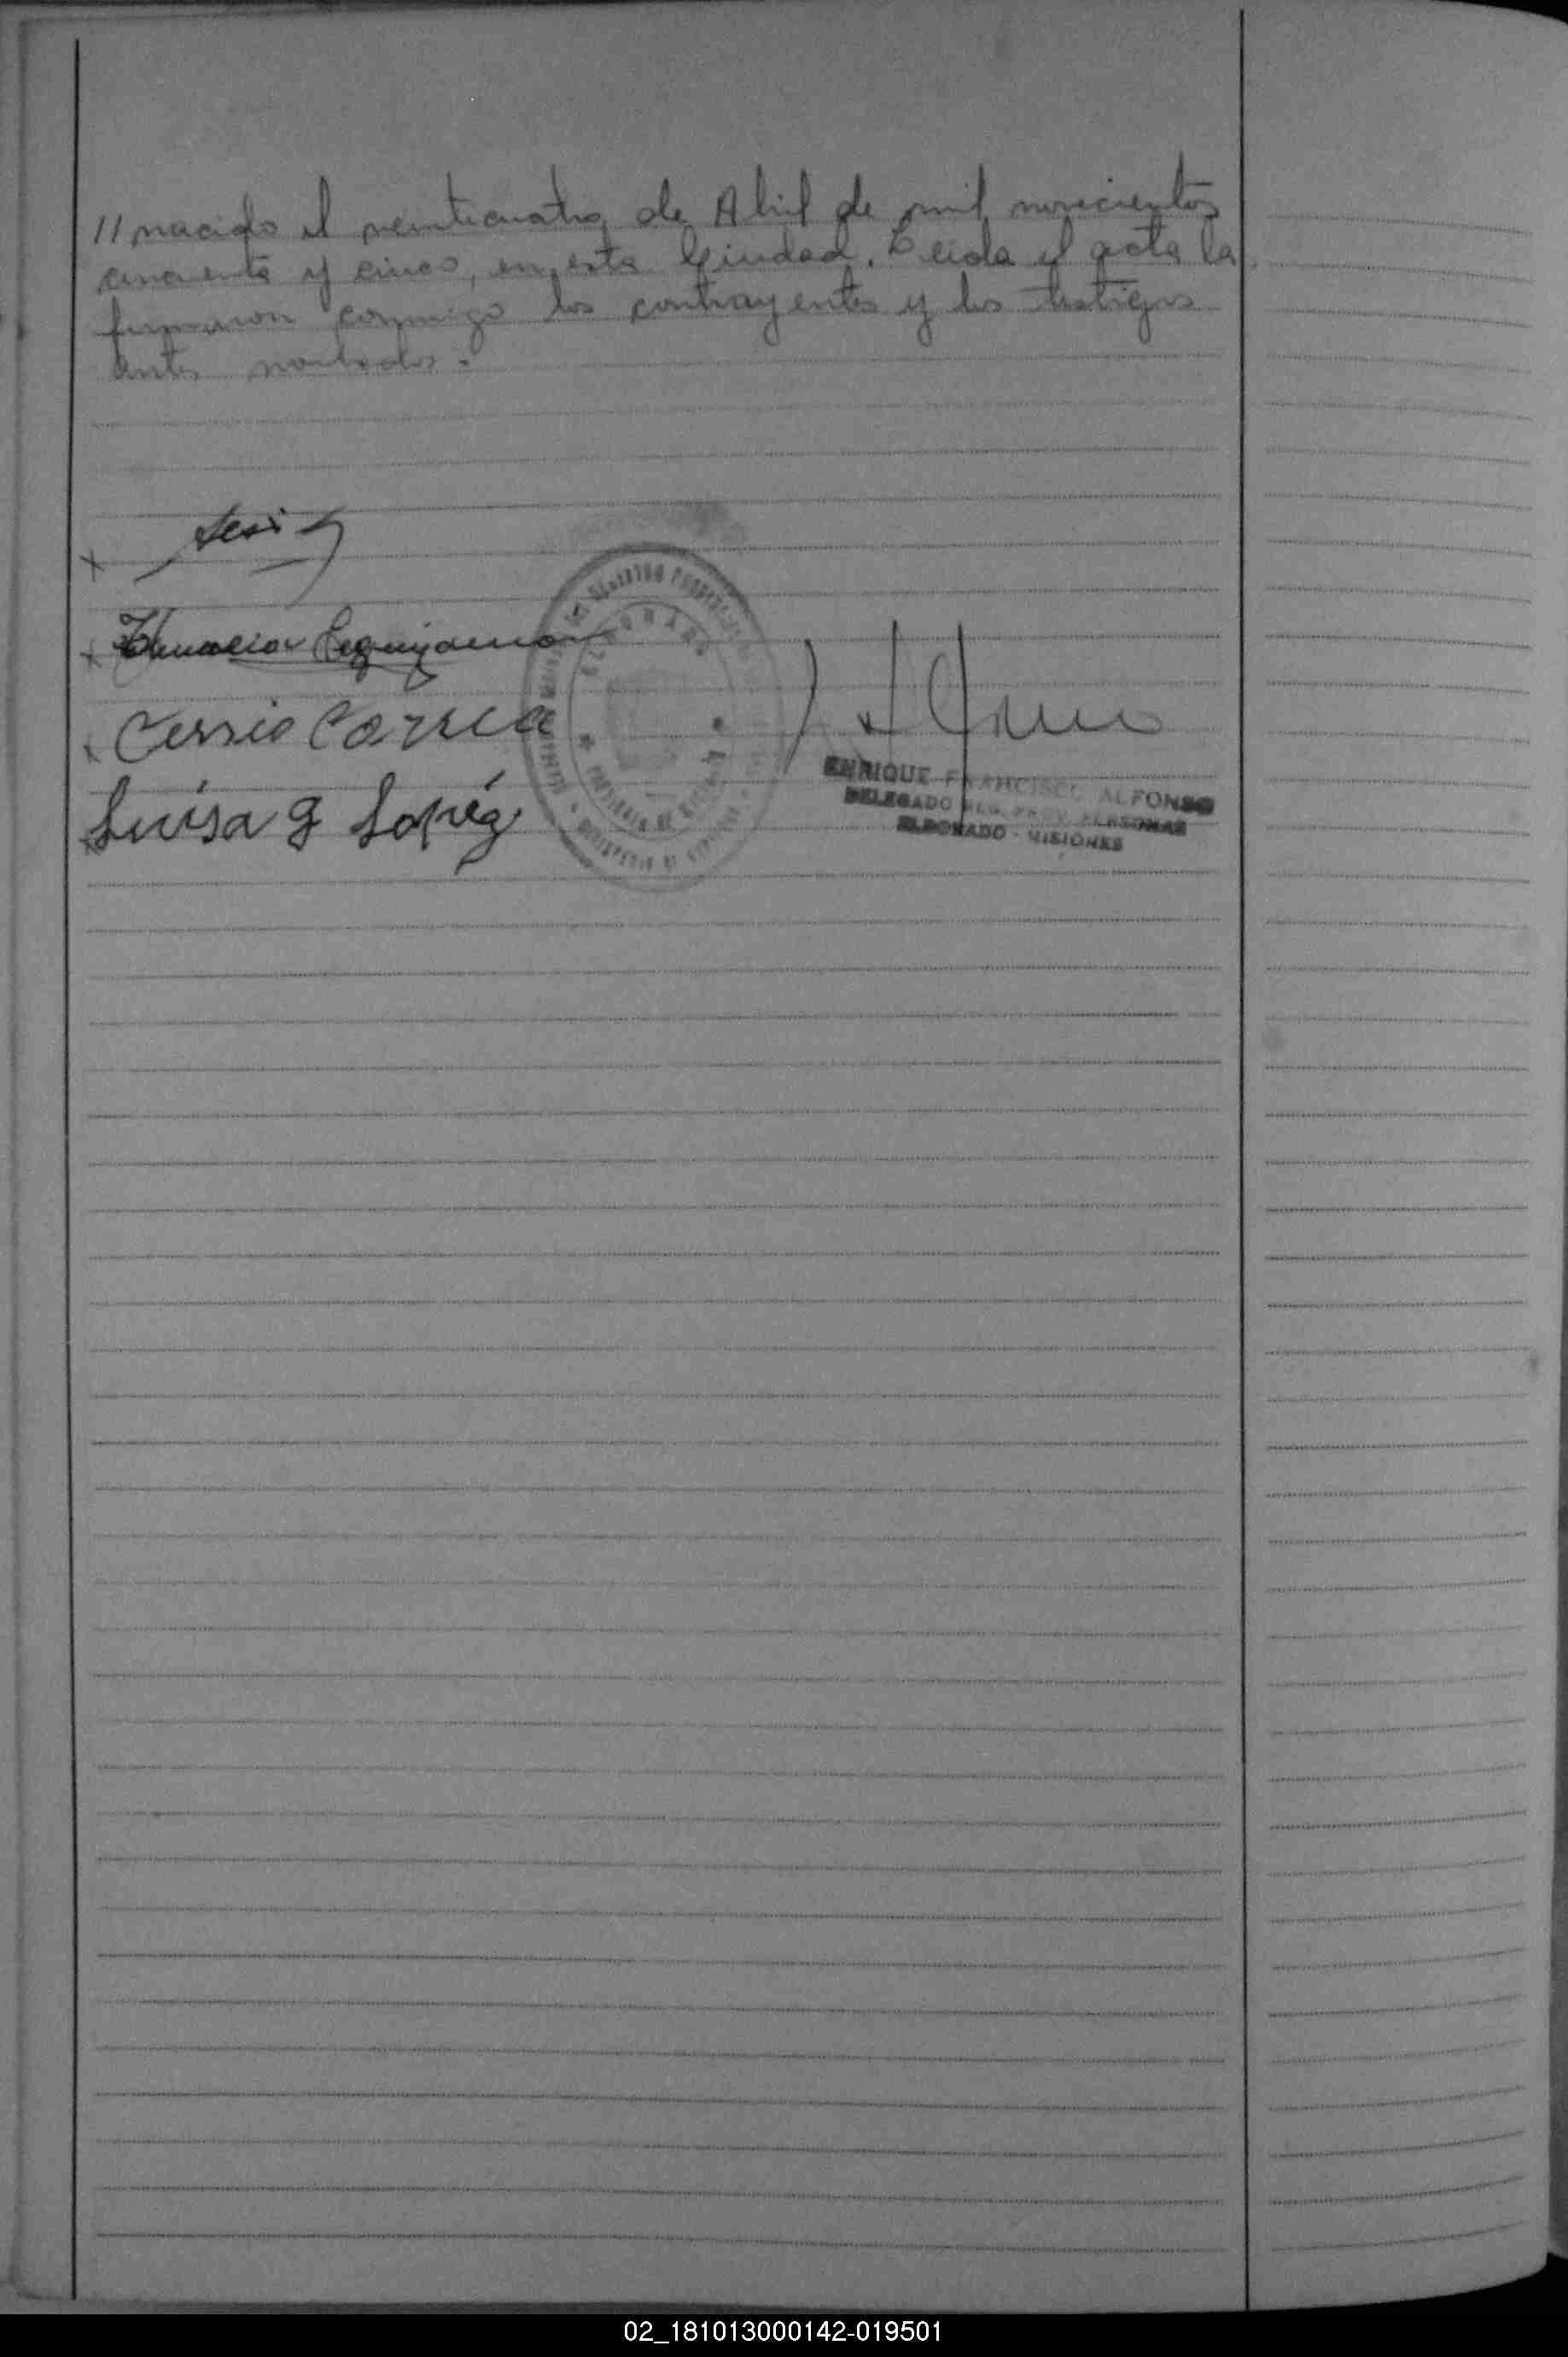 //nacido el veinticuatro de Abril de mil novecientos
cincuenta y cinco, en esta Ciudad. Leida el acta la
firmaron conmigo los contrayentes y los testigos
antes nombrados.-
x
x
x Correa
Luisa G Lopéz
ELDORADO
ENRIQUE FRANCISCO ALFONSO
DELEGADO REG. PROV. PERSONAS
ELDORADO - MISIONES
02_181013000142-019501